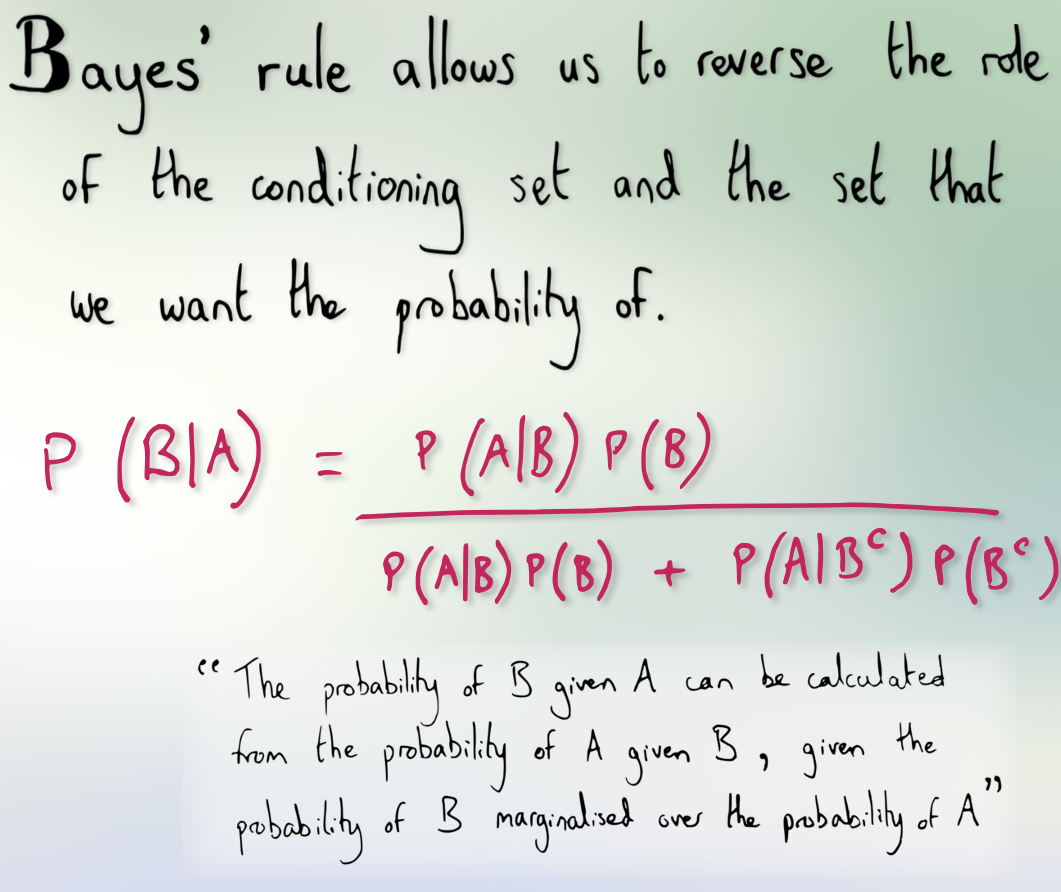 Bayes' rule allows us to reverse the role
of the conditioning set and the set that
we want the probability of.
P (B|A) = P (A|B) P(B)
P(A|B) P(B) + P(A|Bᶜ) P(Bᶜ)
“ The probability of B given A can be calculated
from the probability of A given B, given the
probability of B marginalised over the probability of A ”